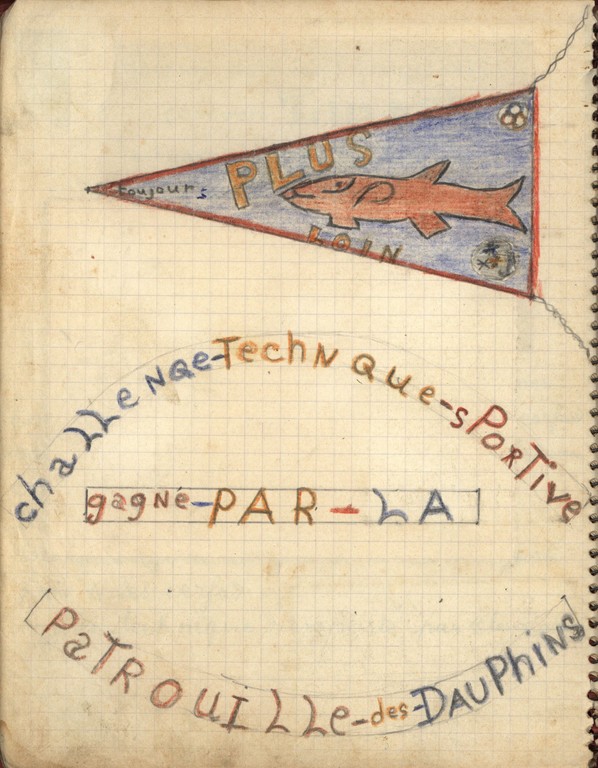 toujours
PLUS
LOIN
chaLLeNge-TechNque-sPoRTive
gagné-PAR-LA
PaTROUILLe-des-DAUPhiNS